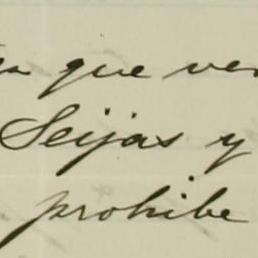 que
Seijas y
prohibe